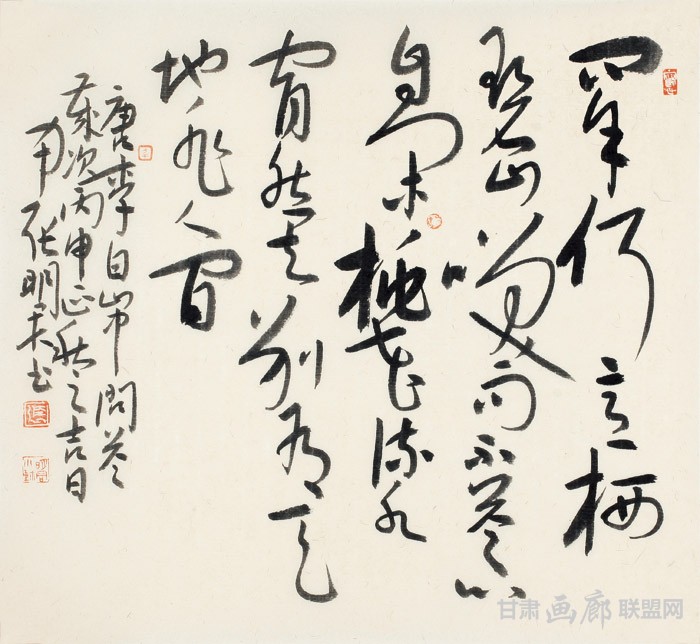 問余何意栖
碧山笑而不答心
自閑桃花流水
窅然去別有天
地非人間
唐李白山中問答
歲次丙申正秋之吉日
張明 書
甘肃画廊联盟网